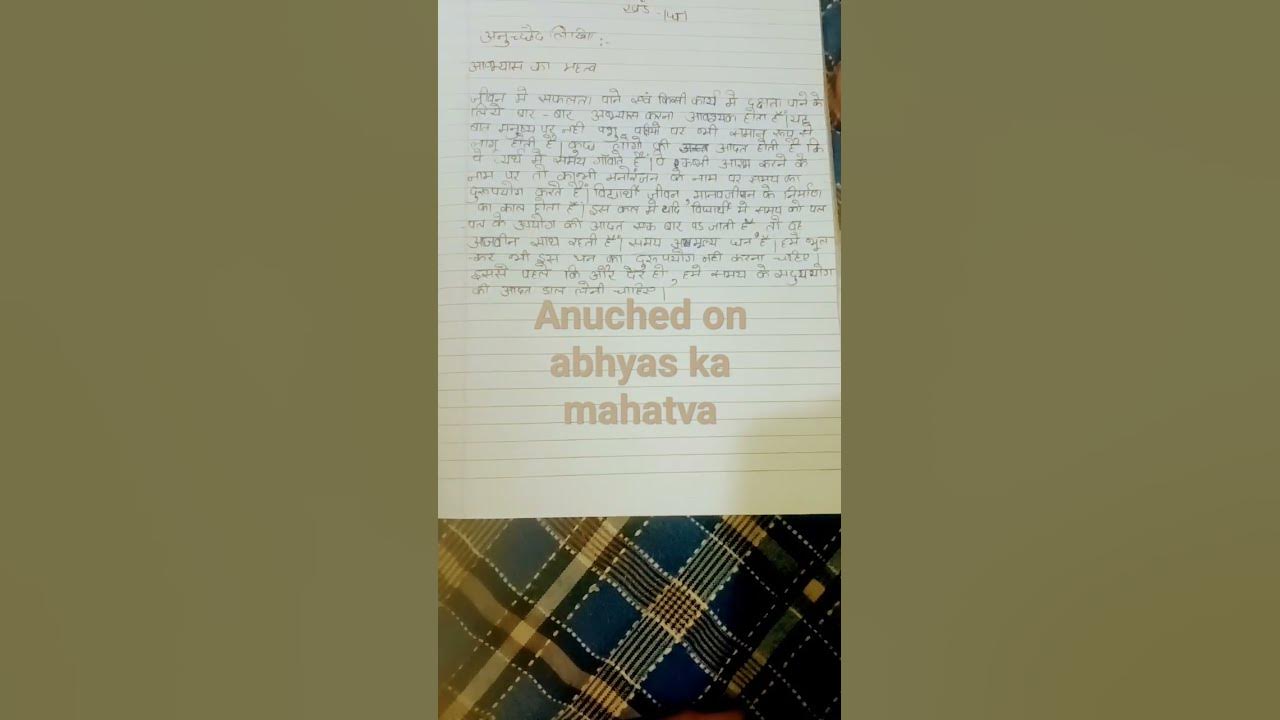 खंड - घ
अनुच्छेद लिखिए :-
अभ्यास का महत्व
जीवन में सफलता पाने एवं किसी कार्य में दक्षता पाने के
लिये बार - बार अभ्यास करना आवश्यक होता है। यह
बात मनुष्य पर नही पशु पक्षियों पर भी समान रूप से
लागू होती है। कुछ लोगो की आदत होती है कि
वे व्यर्थ में समय गँवाते हैं। वे कभी आराम करने के
नाम पर तो कभी मनोरंजन के नाम पर समय का
दुरूपयोग करते हैं। विद्यार्थी जीवन, मानवजीवन के निर्माण
का काल होता है। इस काल में यदि विद्यार्थी में समय को पल
पल के उपयोग की आदत एक बार पड जाती है तो वह
आजीवन साथ रहती है। समय अमूल्य धन है। हमें भूल
कर भी इस धन का दुरूपयोग नही करना चाहिए।
इससे पहले कि और देर हो, हमे समय के सदुपयोग
की आदत डाल लेनी चाहिए।
Anuched on
abhyas ka
mahatva